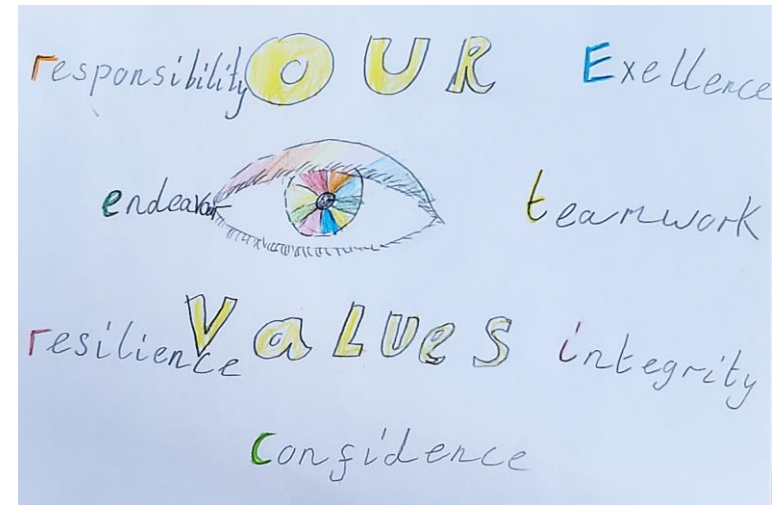 responsibility OUR Exellence
endeavour teamwork
resilience Values integrity
Confidence